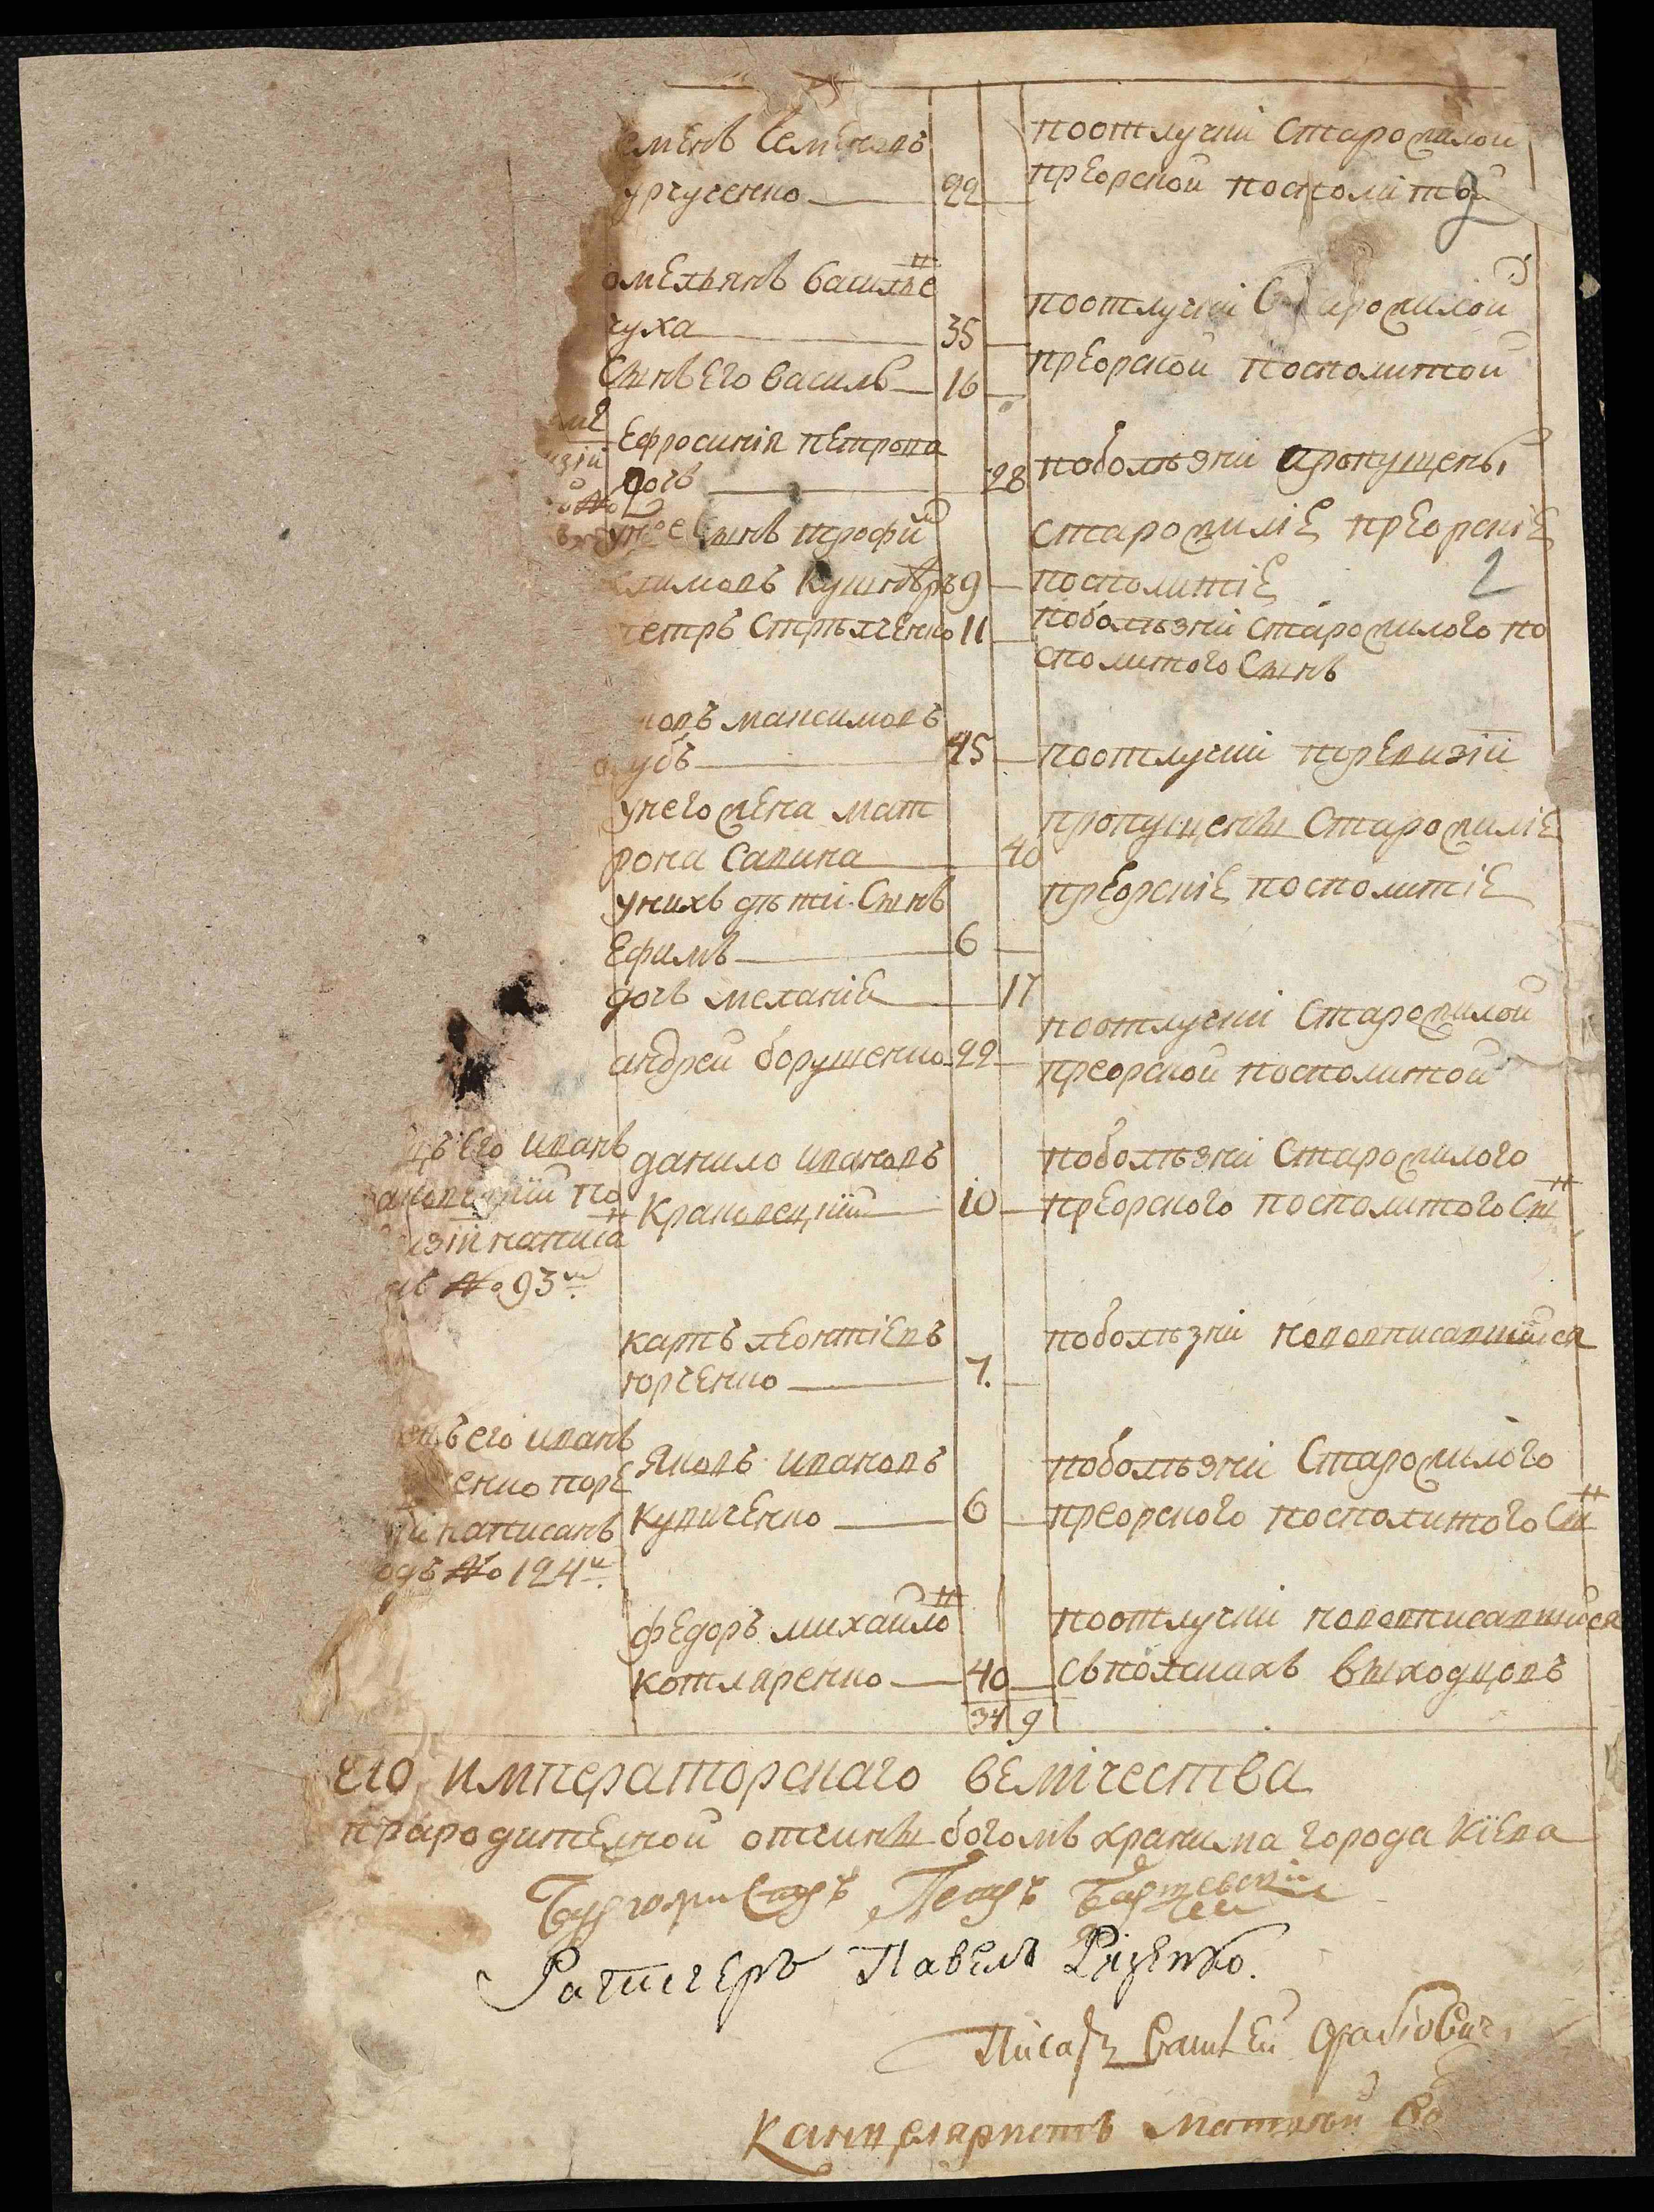 еменъ Семеновъ
урчученко 22
поотлучкі Старожилой
преорской посполитой
омельянъ василье
чуха 35
Сынъ Его василь 16
поотлучкі Старожилой
преорской посполитой
Ефросинія петрова
дочь 28
поболѣзні пропущены
Сынъ трофи
климовъ кушнѣръ 9
Старожиліе преорскіе
посполитіе
петръ Стрѣлченко 11
поболѣзні Старожилого по
сполитого Сынъ
ковъ максимовъ
убъ 45
поотлучкі поревизіи
унего жена мат
рона Савина 40
пропущены Старожиліе
унихъ дѣти Сынъ
Ефимъ 6
преорскіе посполитіе
дочь меланіе 17
андрей борушенко 22
поотлучкі Старожилой
преорской посполитой
Его иванъ
по
визіи написа
№ 93
данило ивановъ
Краковецкий 10
поболѣзні Старожилого
преорского посполитого Сы
карпъ леонтіевъ
юрченко 7.
поболѣзні нововписавшийся
его иванъ
енко поре
написанъ
подъ № 124
Яковъ ивановъ
купиченко 6
поболѣзні Старожилого
преорского посполитого Сы
федоръ михайло
котляренко 40
34 9
поотлучкі нововписавшийся
сьполскихъ выходцовъ
его императорскаго величества
прародителной отчины богомъ хранима города Кіева
Бургомистръ Петръ
Ратгчеръ Павелъ
Писарь
Канцеляристъ Матвѣй